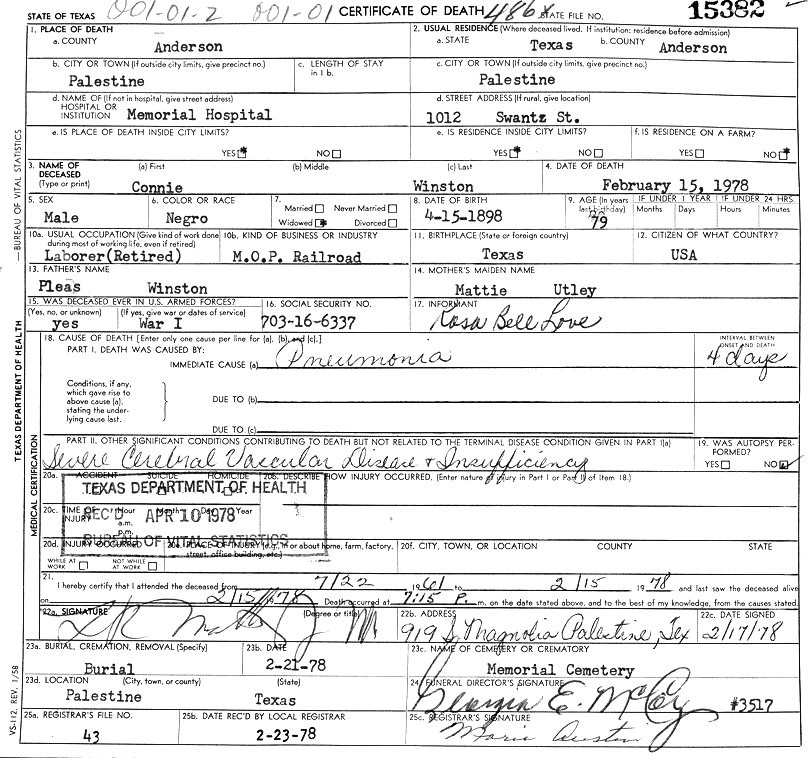 STATE OF TEXAS 001-01-2 001-01 CERTIFICATE OF DEATH 486x STATE FILE NO. 15382
1. PLACE OF DEATH
a. COUNTY Anderson
2. USUAL RESIDENCE (Where deceased lived. If institution: residence before admission)
a. STATE Texas b. COUNTY Anderson
b. CITY OR TOWN (If outside city limits, give precinct no.) Palestine
c. LENGTH OF STAY in 1 b.
c. CITY OR TOWN (If outside city limits, give precinct no.) Palestine
d. NAME OF (If not in hospital, give street address) HOSPITAL OR INSTITUTION Memorial Hospital
d. STREET ADDRESS (If rural, give location) 1012 Swantz St.
e. IS PLACE OF DEATH INSIDE CITY LIMITS? YES NO
e. IS RESIDENCE INSIDE CITY LIMITS? YES NO
f. IS RESIDENCE ON A FARM? YES NO
3. NAME OF DECEASED (Type or print) (a) First Connie (b) Middle (c) Last Winston
4. DATE OF DEATH February 15, 1978
5. SEX Male
6. COLOR OR RACE Negro
7. Married Never Married Widowed Divorced
8. DATE OF BIRTH 4-15-1898
9. AGE (In years last birthday) 79
IF UNDER 1 YEAR Months Days
IF UNDER 24 HRS. Hours Minutes
10a. USUAL OCCUPATION (Give kind of work done during most of working life, even if retired) Laborer(Retired)
10b. KIND OF BUSINESS OR INDUSTRY M.O.P. Railroad
11. BIRTHPLACE (State or foreign country) Texas
12. CITIZEN OF WHAT COUNTRY? USA
13. FATHER'S NAME Pleas Winston
14. MOTHER'S MAIDEN NAME Mattie Utley
15. WAS DECEASED EVER IN U.S. ARMED FORCES? (Yes, no, or unknown) yes (If yes, give war or dates of service) War I
16. SOCIAL SECURITY NO. 703-16-6337
17. INFORMANT Rosa Bell Love
18. CAUSE OF DEATH [Enter only one cause per line for (a), (b), and (c).]
PART I. DEATH WAS CAUSED BY:
IMMEDIATE CAUSE (a) Pneumonia
INTERVAL BETWEEN ONSET AND DEATH 4 days
Conditions, if any, which gave rise to above cause (a), stating the underlying cause last.
DUE TO (b)
DUE TO (c)
PART II. OTHER SIGNIFICANT CONDITIONS CONTRIBUTING TO DEATH BUT NOT RELATED TO THE TERMINAL DISEASE CONDITION GIVEN IN PART I(a)
Severe Cerebral Vascular Disease + Insufficiency
19. WAS AUTOPSY PERFORMED? YES NO
20a. ACCIDENT SUICIDE HOMICIDE
20b. DESCRIBE HOW INJURY OCCURRED. (Enter nature of injury in Part I or Part II of Item 18.)
TEXAS DEPARTMENT OF HEALTH
REC'D APR 10 1978
BUREAU OF VITAL STATISTICS
20c. TIME OF INJURY Hour a.m. p.m. Month Day Year
20d. INJURY OCCURRED WHILE AT WORK NOT WHILE AT WORK
20e. PLACE OF INJURY (e.g., in or about home, farm, factory, street, office building, etc.)
20f. CITY, TOWN, OR LOCATION COUNTY STATE
21. I hereby certify that I attended the deceased from 7/22 1961 to 2/15 1978 and last saw the deceased alive
on 2/15/78 Death occurred at 7:15 P. m. on the date stated above, and to the best of my knowledge, from the causes stated.
22a. SIGNATURE (Degree or title)
22b. ADDRESS 919 S. Magnolia Palestine, Tex
22c. DATE SIGNED 2/17/78
23a. BURIAL, CREMATION, REMOVAL (Specify) Burial
23b. DATE 2-21-78
23c. NAME OF CEMETERY OR CREMATORY Memorial Cemetery
23d. LOCATION (City, town, or county) Palestine (State) Texas
24. FUNERAL DIRECTOR'S SIGNATURE Georgia E. McCoy #3517
25a. REGISTRAR'S FILE NO. 43
25b. DATE REC'D BY LOCAL REGISTRAR 2-23-78
25c. REGISTRAR'S SIGNATURE Marie Austin
TEXAS DEPARTMENT OF HEALTH — BUREAU OF VITAL STATISTICS
MEDICAL CERTIFICATION
VS-112, REV. 1/58